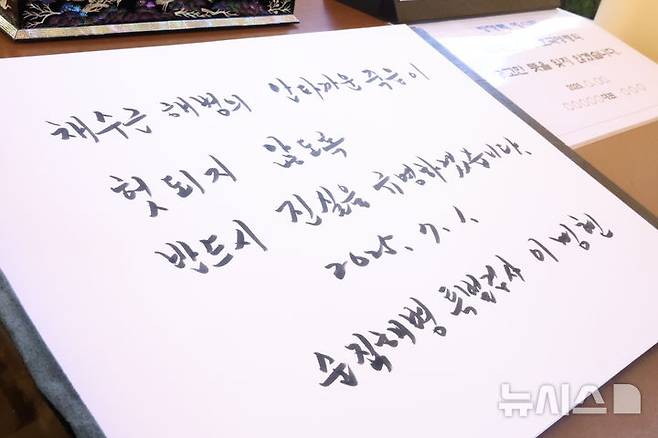 채수근 해병의 안타까운 죽음이
헛되지 않도록
반드시 진실을 규명하겠습니다.
2025. 7. 1.
순직해병 특별검사 이명현
뉴시스